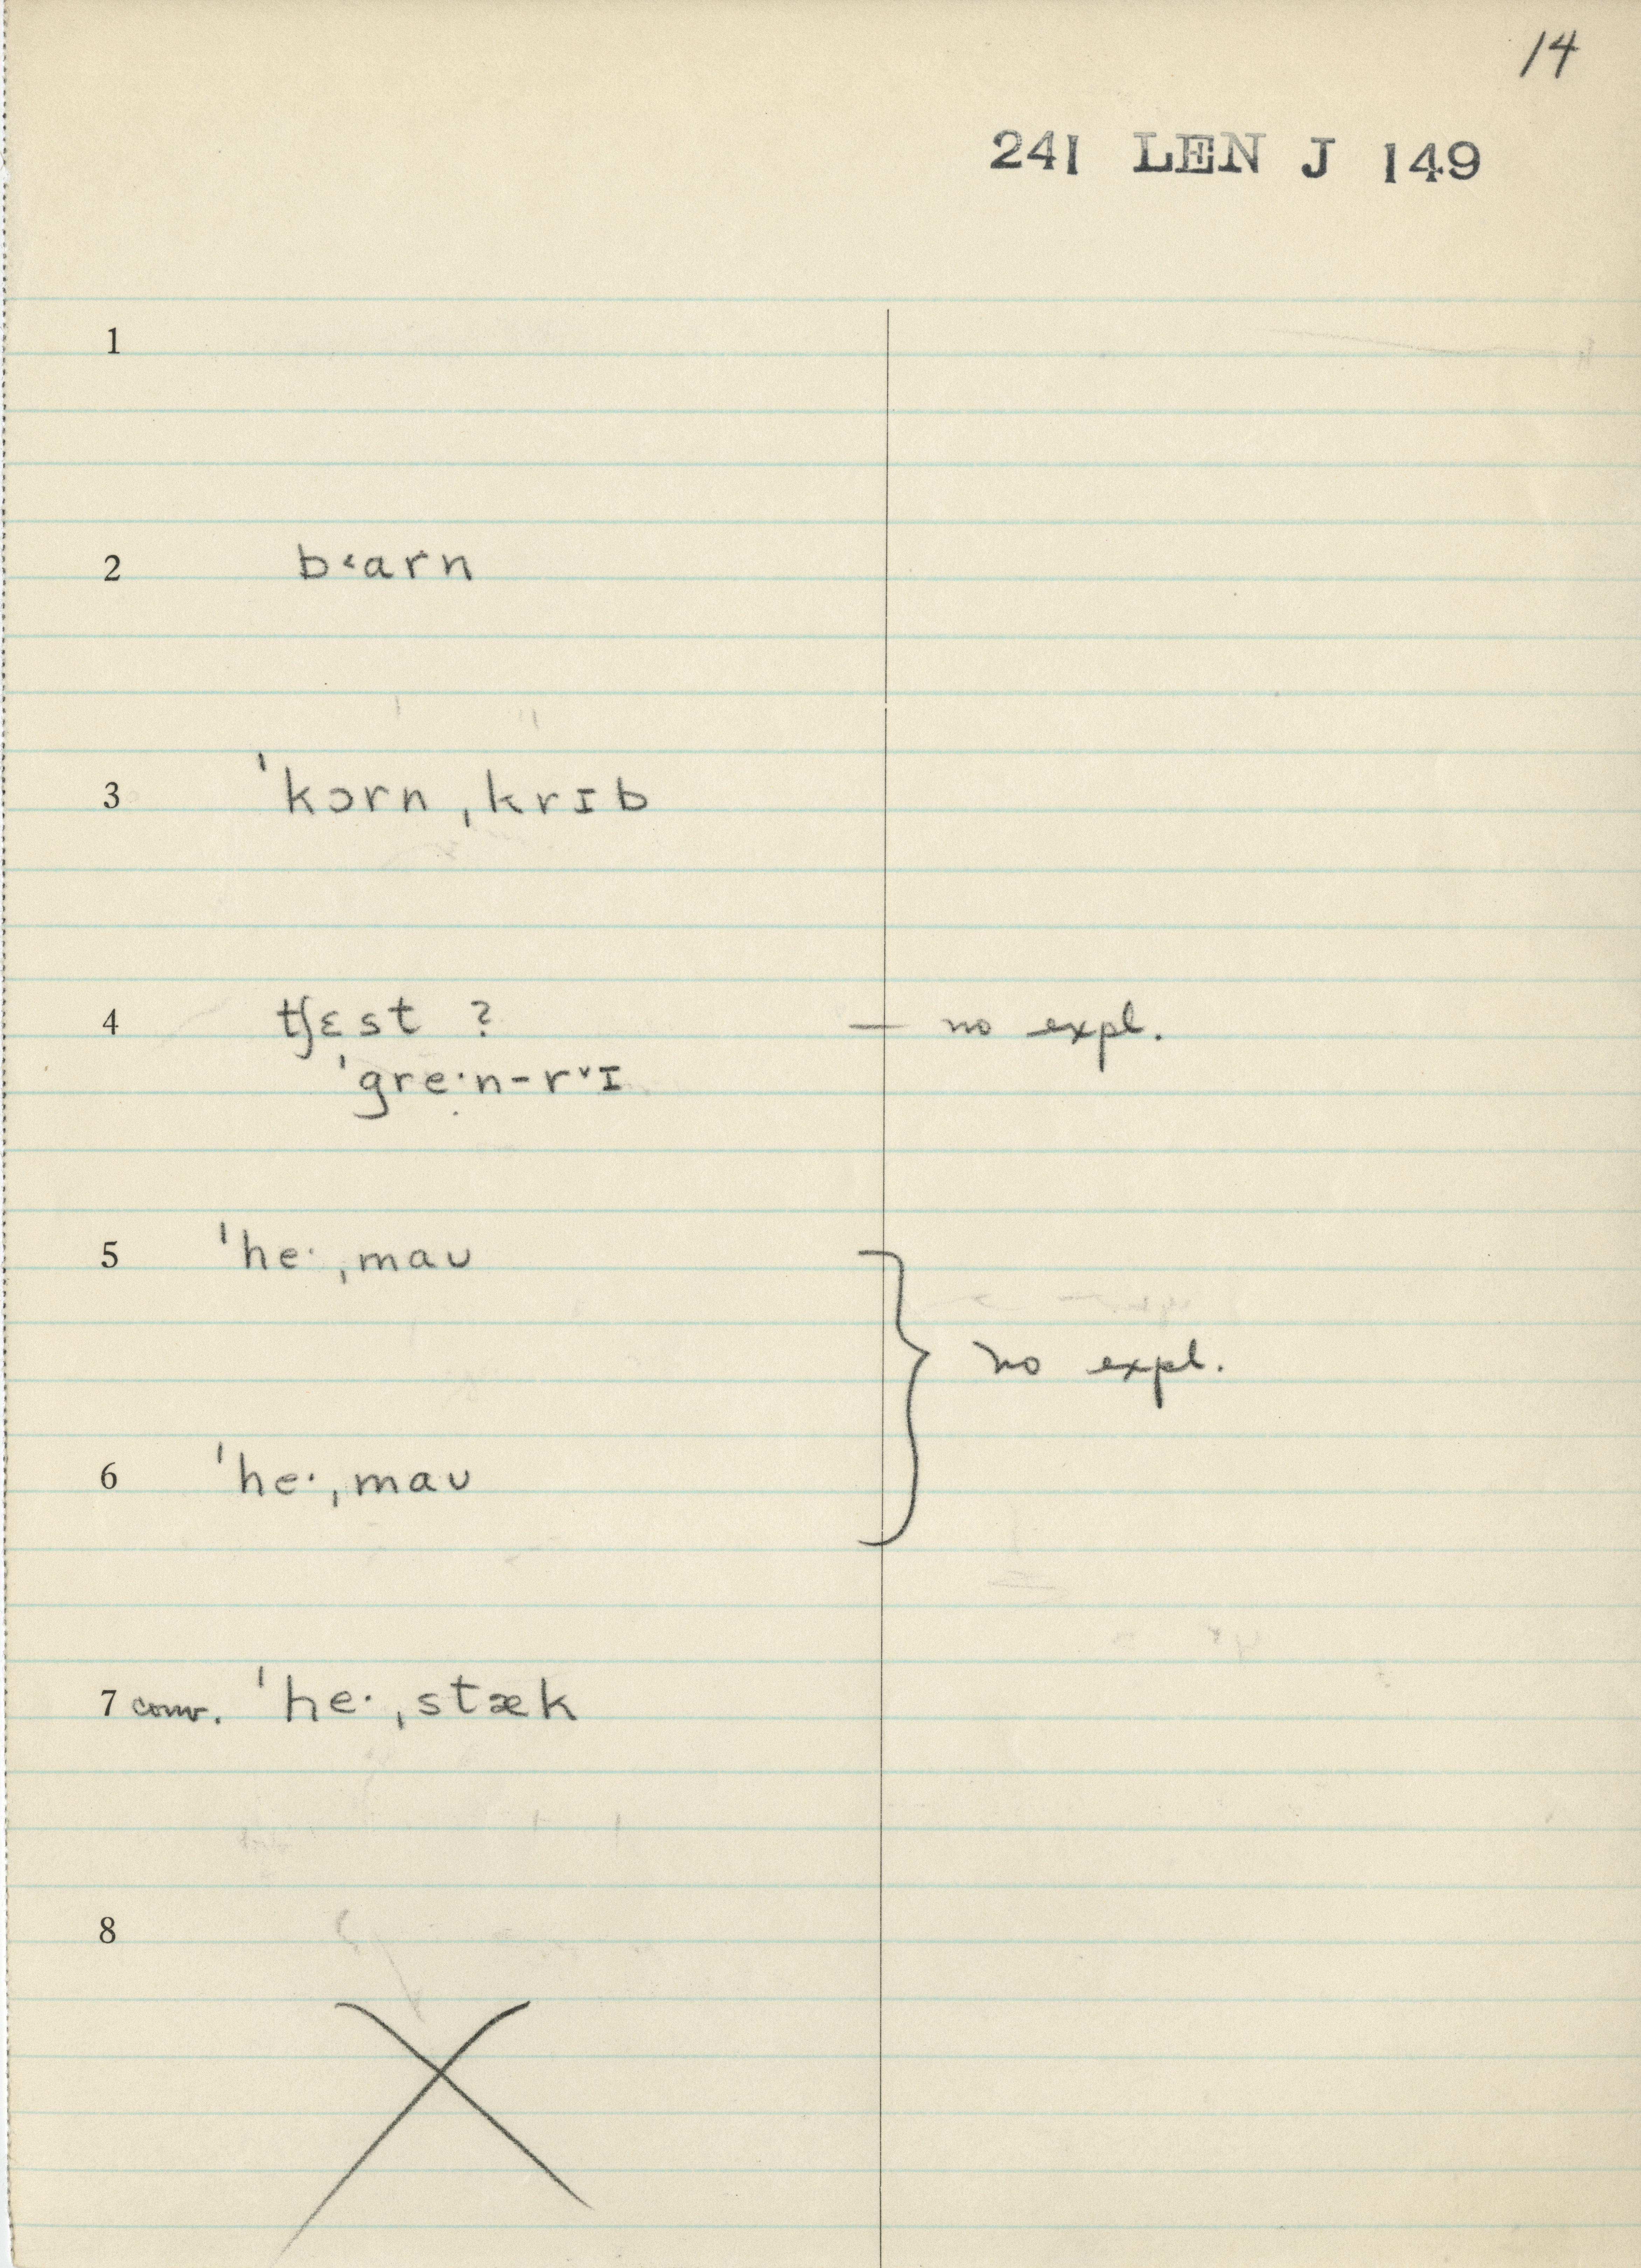 14
241 LEN J 149
1
2 b˂arn
3 ˈkɔrn ˌkrɪb
4 tʃɛst ? — no expl.
ˈgre·n-r˅ɪ
5 ˈhe· ˌmaʊ
no expl.
6 ˈhe· ˌmaʊ
7 conv. ˈhe· ˌstæk
8